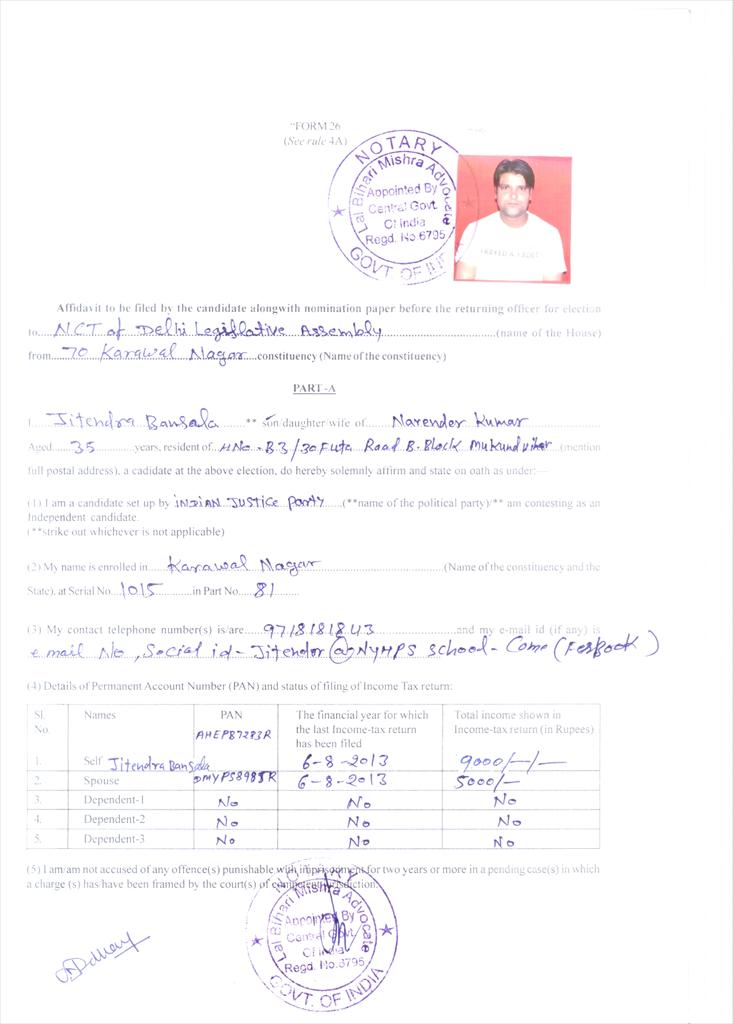 "FORM 26
(See rule 4A)
NOTARY
Lal Bihari Mishra Advocate
Appointed By
Central Govt.
Of India
Regd. No.6795
GOVT OF
Affidavit to be filed by the candidate alongwith nomination paper before the returning officer for election
to NCT of Delhi Legislative Assembly (name of the House)
from 70 Karawal Nagar constituency (Name of the constituency)
PART-A
I Jitendra Bansala ** son/daughter/wife of Narender Kumar
Aged 35 years, resident of HNo.-B3/30 Futa Road B-Block Mukund vihar (mention
full postal address), a cadidate at the above election, do hereby solemnly affirm and state on oath as under:—
(1) I am a candidate set up by INDIAN JUSTICE Party (**name of the political party)/** am contesting as an
Independent candidate.
(**strike out whichever is not applicable)
(2) My name is enrolled in Karawal Nagar (Name of the constituency and the
State), at Serial No. 1015 in Part No. 81
(3) My contact telephone number(s) is/are 9718181843 and my e-mail id (if any) is
e mail No, Social id- Jitender@NyHPS school-Come (Fesbook)
(4) Details of Permanent Account Number (PAN) and status of filing of Income Tax return:
Sl. No. Names PAN The financial year for which the last Income-tax return has been filed Total income shown in Income-tax return (in Rupees)
1. Self Jitendra Bansala AHEPB7283R 6-8-2013 9000/-/-
2. Spouse 6-8-2013 5000/-
3. Dependent-1 No No No
4. Dependent-2 No No No
5. Dependent-3 No No No
(5) I am/am not accused of any offence(s) punishable with imprisonment for two years or more in a pending case(s) in which
a charge (s) has/have been framed by the court(s) of competent jurisdiction.
NOTARY
Lal Bihari Mishra Advocate
Appointed By
Central Govt.
Of India
Regd. No.6795
GOVT. OF INDIA